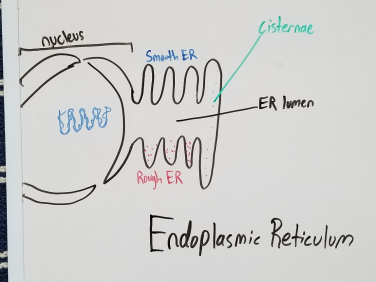 nucleus
Smooth ER
Cisternae
ER lumen
Rough ER
Endoplasmic Reticulum